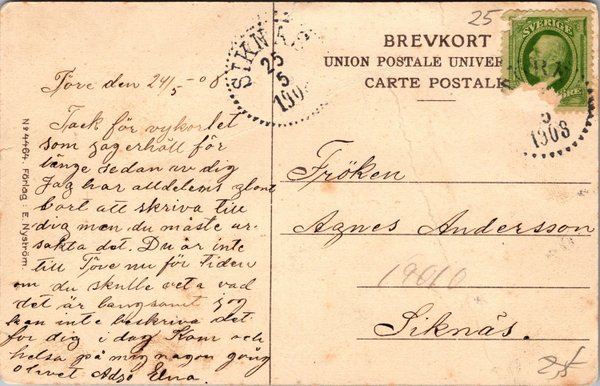 25
SIKNÄS
25
5
190
BREVKORT
UNION POSTALE UNIVER
CARTE POSTALE
SVERIGE
ÖRE
5
1908
Töre den 24/5 -08
Tack för vykortet
som jag erhöll för
länge sedan av dig
Jag har alldeles glömt
bort att skriva till
dig men du måste ur-
sakta det. Du är inte
till Töre nu för tiden
om du skulle veta vad
det är langsamt jag
kan inte beskriva det
for dig i dag Kom och
helsa på mig nagon gång
Adjö Elna.
Nr 4464. Förlag: E. Nyström.
Fröken
Agnes Andersson
Siknäs.
25